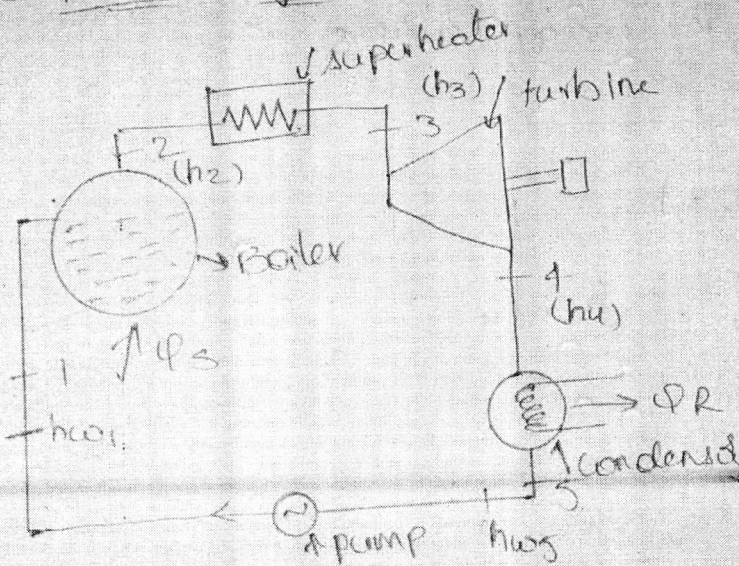 superheater
(h3)
turbine
3
2
(h2)
Boiler
4
(h4)
φs
φR
1
hw1.
condensor
5
pump
hw5